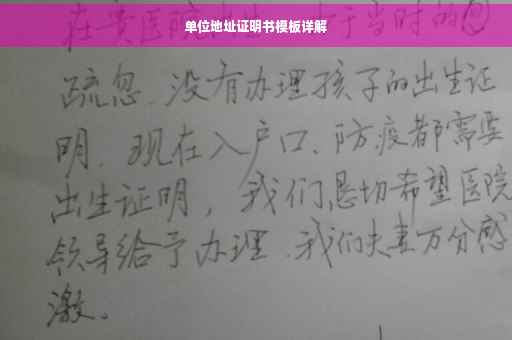 单位地址证明书模板详解
在贵医院出生，由于当时的
疏忽、没有办理孩子的出生证
明．现在入户口、防疫都需要
出生证明，我们恳切希望医院
领导给予办理．我们夫妻万分感
激。